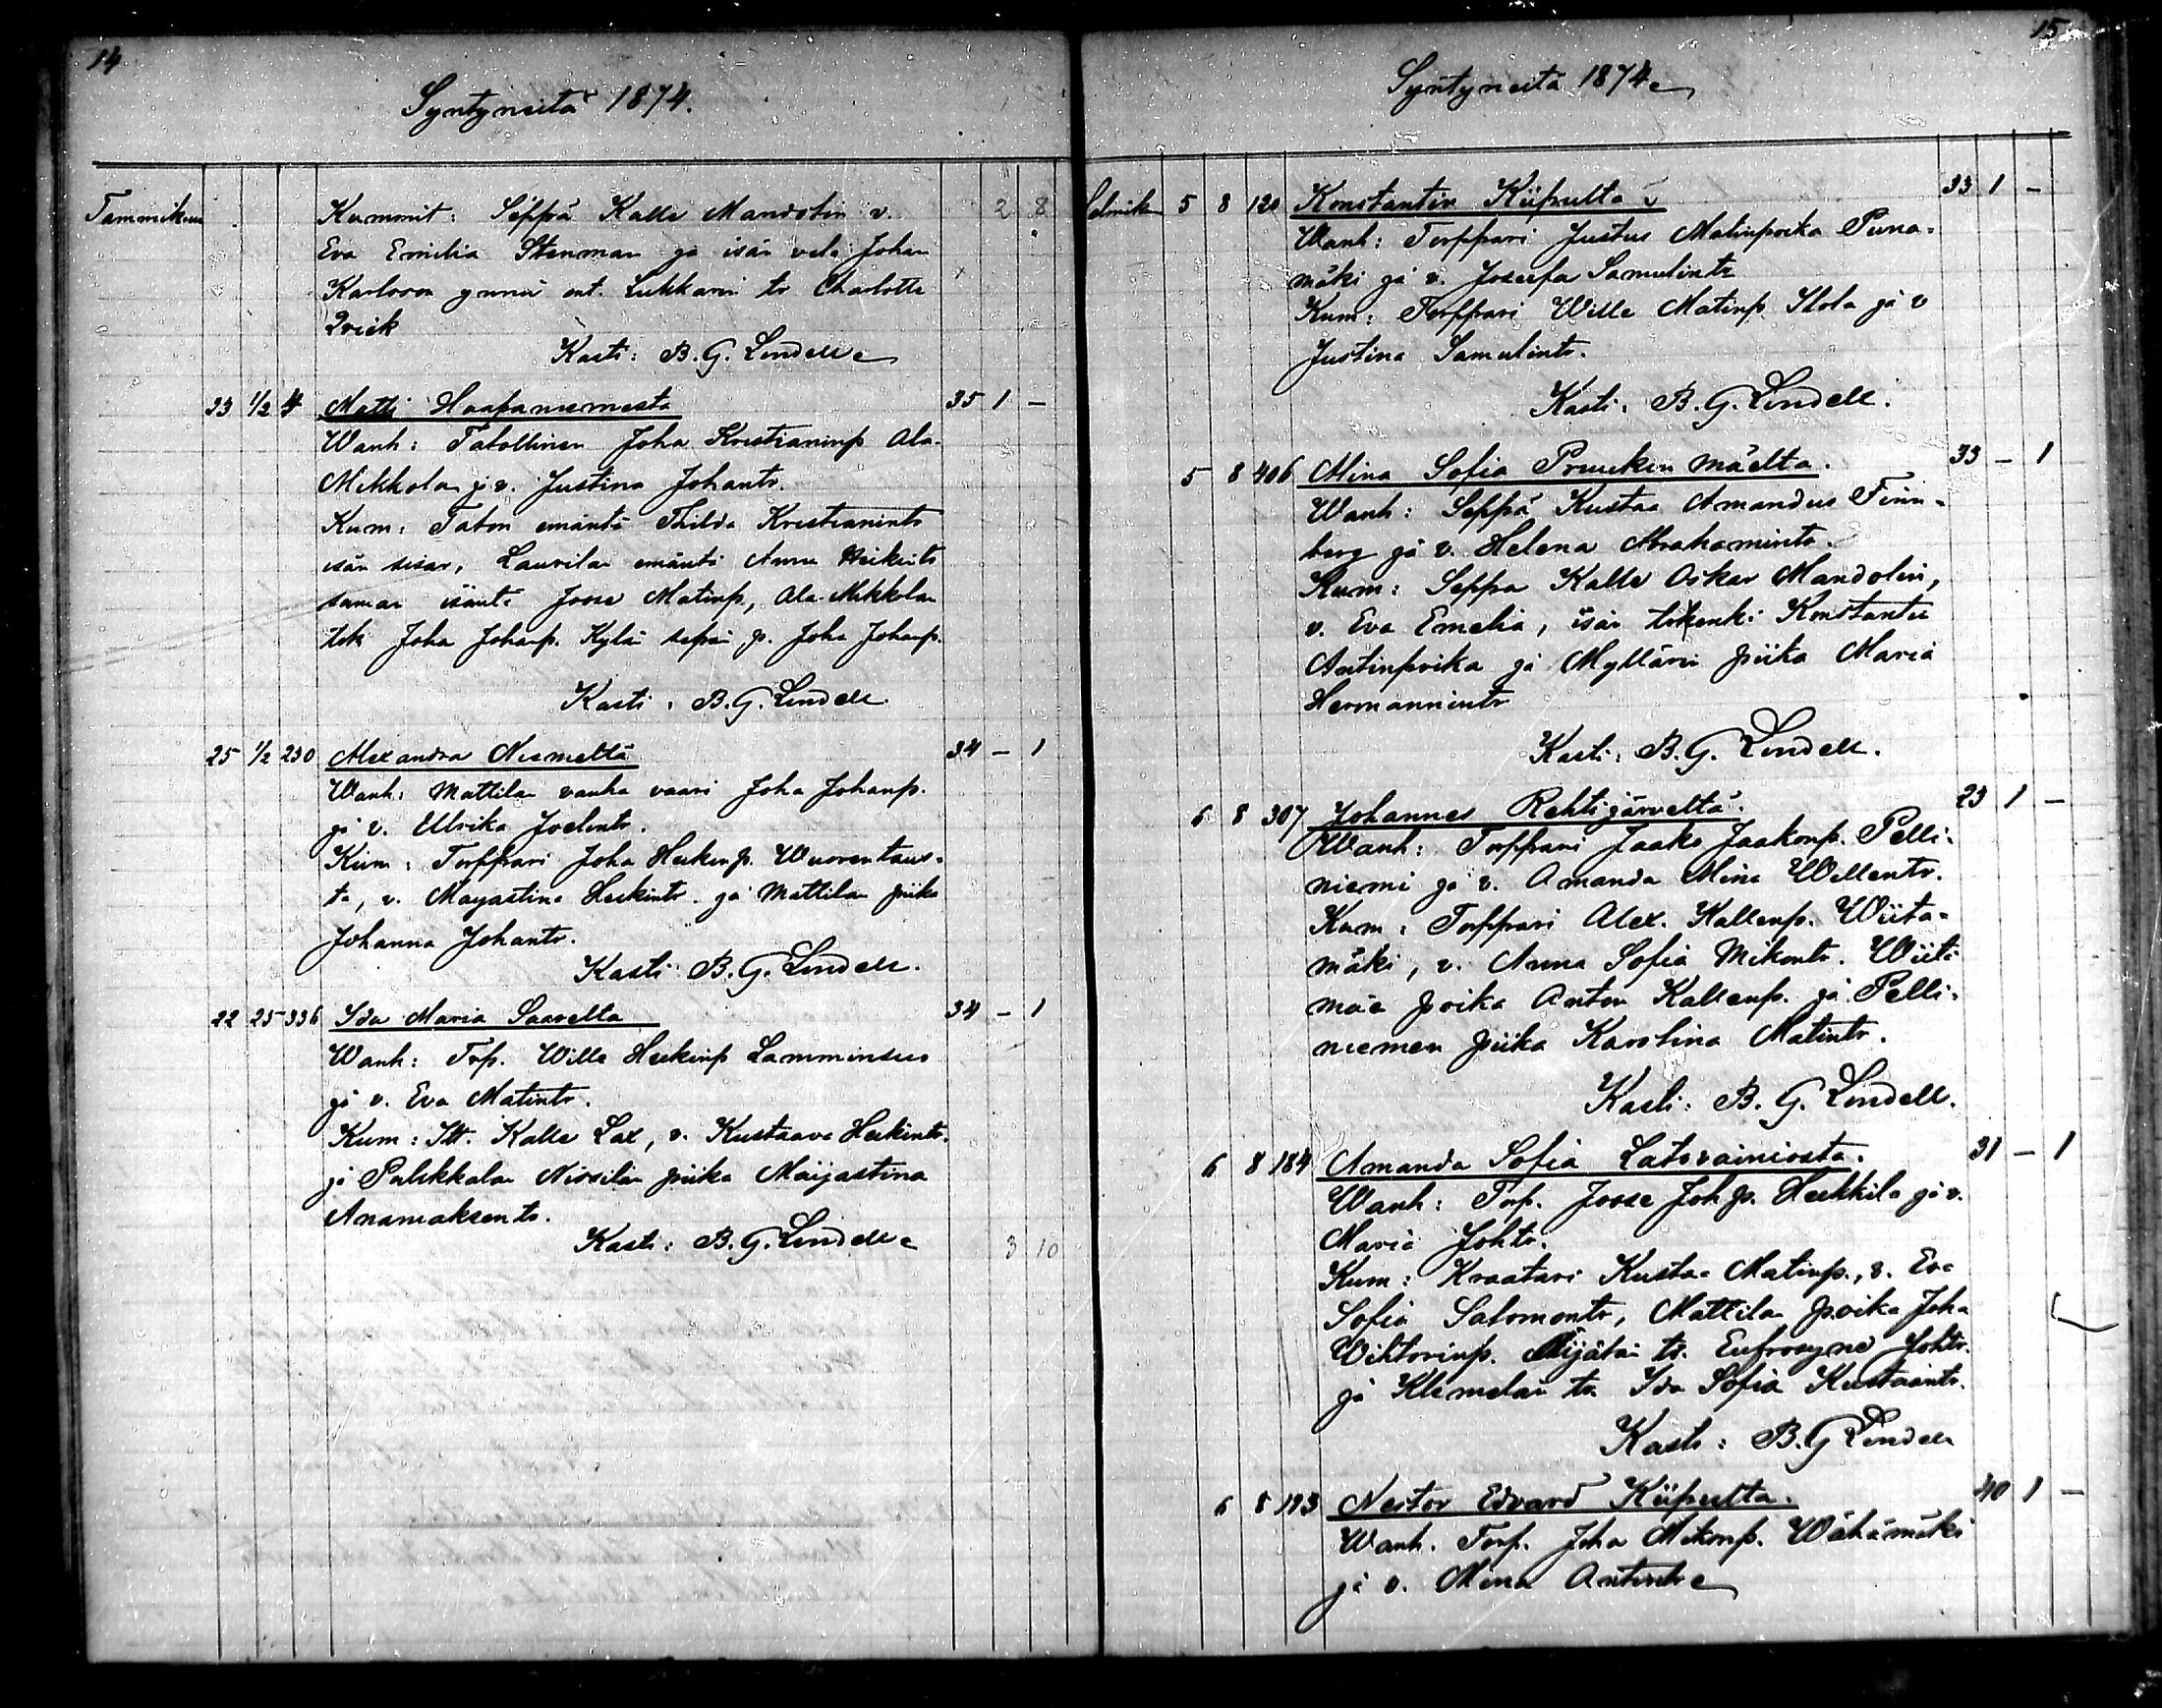 14
Syntyneitä 1874.
Tammikuu Kummit: Seppä Kalle Mandolin v. 2 8
Eva Emilia Stenman ja isän veli Johan
Karlsson ynnä ent. Lukkarin tr Charlotta
Qvick
Kasti: B. G. Lindell
23 1/2 4 Matti Haapaniemestä 35 1 –
Wanh: Talollinen Joha Kristianinp Ala-
Mikkola j. v. Justina Johantr.
Kum: Talon emäntä Thilda Kristianintr
isän sisar, Laurilan emäntä Anna Heikintr
saman isäntä Joose Matinp, Ala-Mikkolan
Joha Johanp. Kylän sepän p. Joha Johanp.
Kasti: B. G. Lindell
25 1/2 230 Alexandra Niemeltä 34 – 1
Wanh: Mattilan vanha vaari Joha Johanp.
ja v. Ullrika Joelintr.
Kum: Torppari Joha Heikinp. Wuorentaus-
ta, v. Mayastina Heikintr. ja Mattilan piika
Johanna Johantr.
Kasti: B. G. Lindell.
22 25 336 Ida Maria Saarelta 34 – 1
Wanh: Torp. Wille Heikinp Lamminsuu
ja v. Eva Matintr.
Kum: Itl. Kalle Lax, v. Kustaava Heikintr.
ja Pulkkalan piika Maijastina
Ananiaksentr.
Kasti: B. G. Lindell 3 10
15
Syntyneitä 1874
Helmikuu 5 8 120 Konstantin Kiipulta 33 1 –
Wanh: Torppari Justus Matinpoika Puna-
mäki ja v. Josefa Samulintr
Kum: Torppari Wille Matinp. Ilola ja v
Justina Samulintr.
Kasti: B. G. Lindell.
5 8 406 Mina Sofia Pruukin mäeltä. 33 – 1
Wanh: Seppä Kustaa Amandus Finn-
berg ja v. Helena Abrahamintr.
Kum: Seppa Kalle Oskar Mandolin,
v. Eva Emelia, isän Konstantin
Antinpoika ja Myllärin piika Maria
Hermannintr
Kasti: B. G. Lindell.
6 8 307 Johannes Rehtijärveltä. 23 1 –
Wanh: Torppari Jaako Jaakonp. Pelli-
niemi ja v. Amanda Mina Willentr.
Kum: Torppari Alex. Kallenp. Wiita-
mäki, v. Anna Sofia Mikontr. Wiita
mäe poika Anton Kallenp. ja Pelli-
niemen piika Karolina Matintr.
Kasti: B. G. Lindell.
6 8 184 Amanda Sofia Latovainiosta. 31 – 1
Wanh: Torp. Joose Joh p. Heikkilä ja v.
Maria Johtr.
Kum: Kraatari Kustaa Matinp., v. Eva
Sofia Salomontr, Mattilan poika Joha
Wihtorinp. Äijälän tr. Eufrosyne Johtr.
ja Klemelän tr. Ida Sofia Kustaantr.
Kasti: B. G Lindell
6 8 193 Nestor Edvard Kiipulta. 40 1 –
Wanh. Torp. Joha Mikonp. Wähämäki
ja v. Mina Antintr